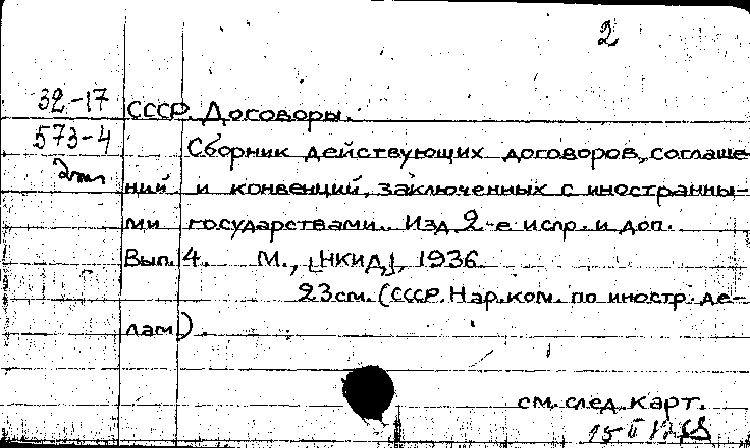 2
32-17 СССР. Договоры.
573-4 Сборник действующих договоров, соглаше-
ний и конвенций, заключенных с иностранны-
ми государствами. Изд. 2-е испр. и доп.
Вып. 4. М., [НКИД], 1936.
23см. (СССР. Нар. ком. по иностр. де-
лам).
см. след. карт.
15 II